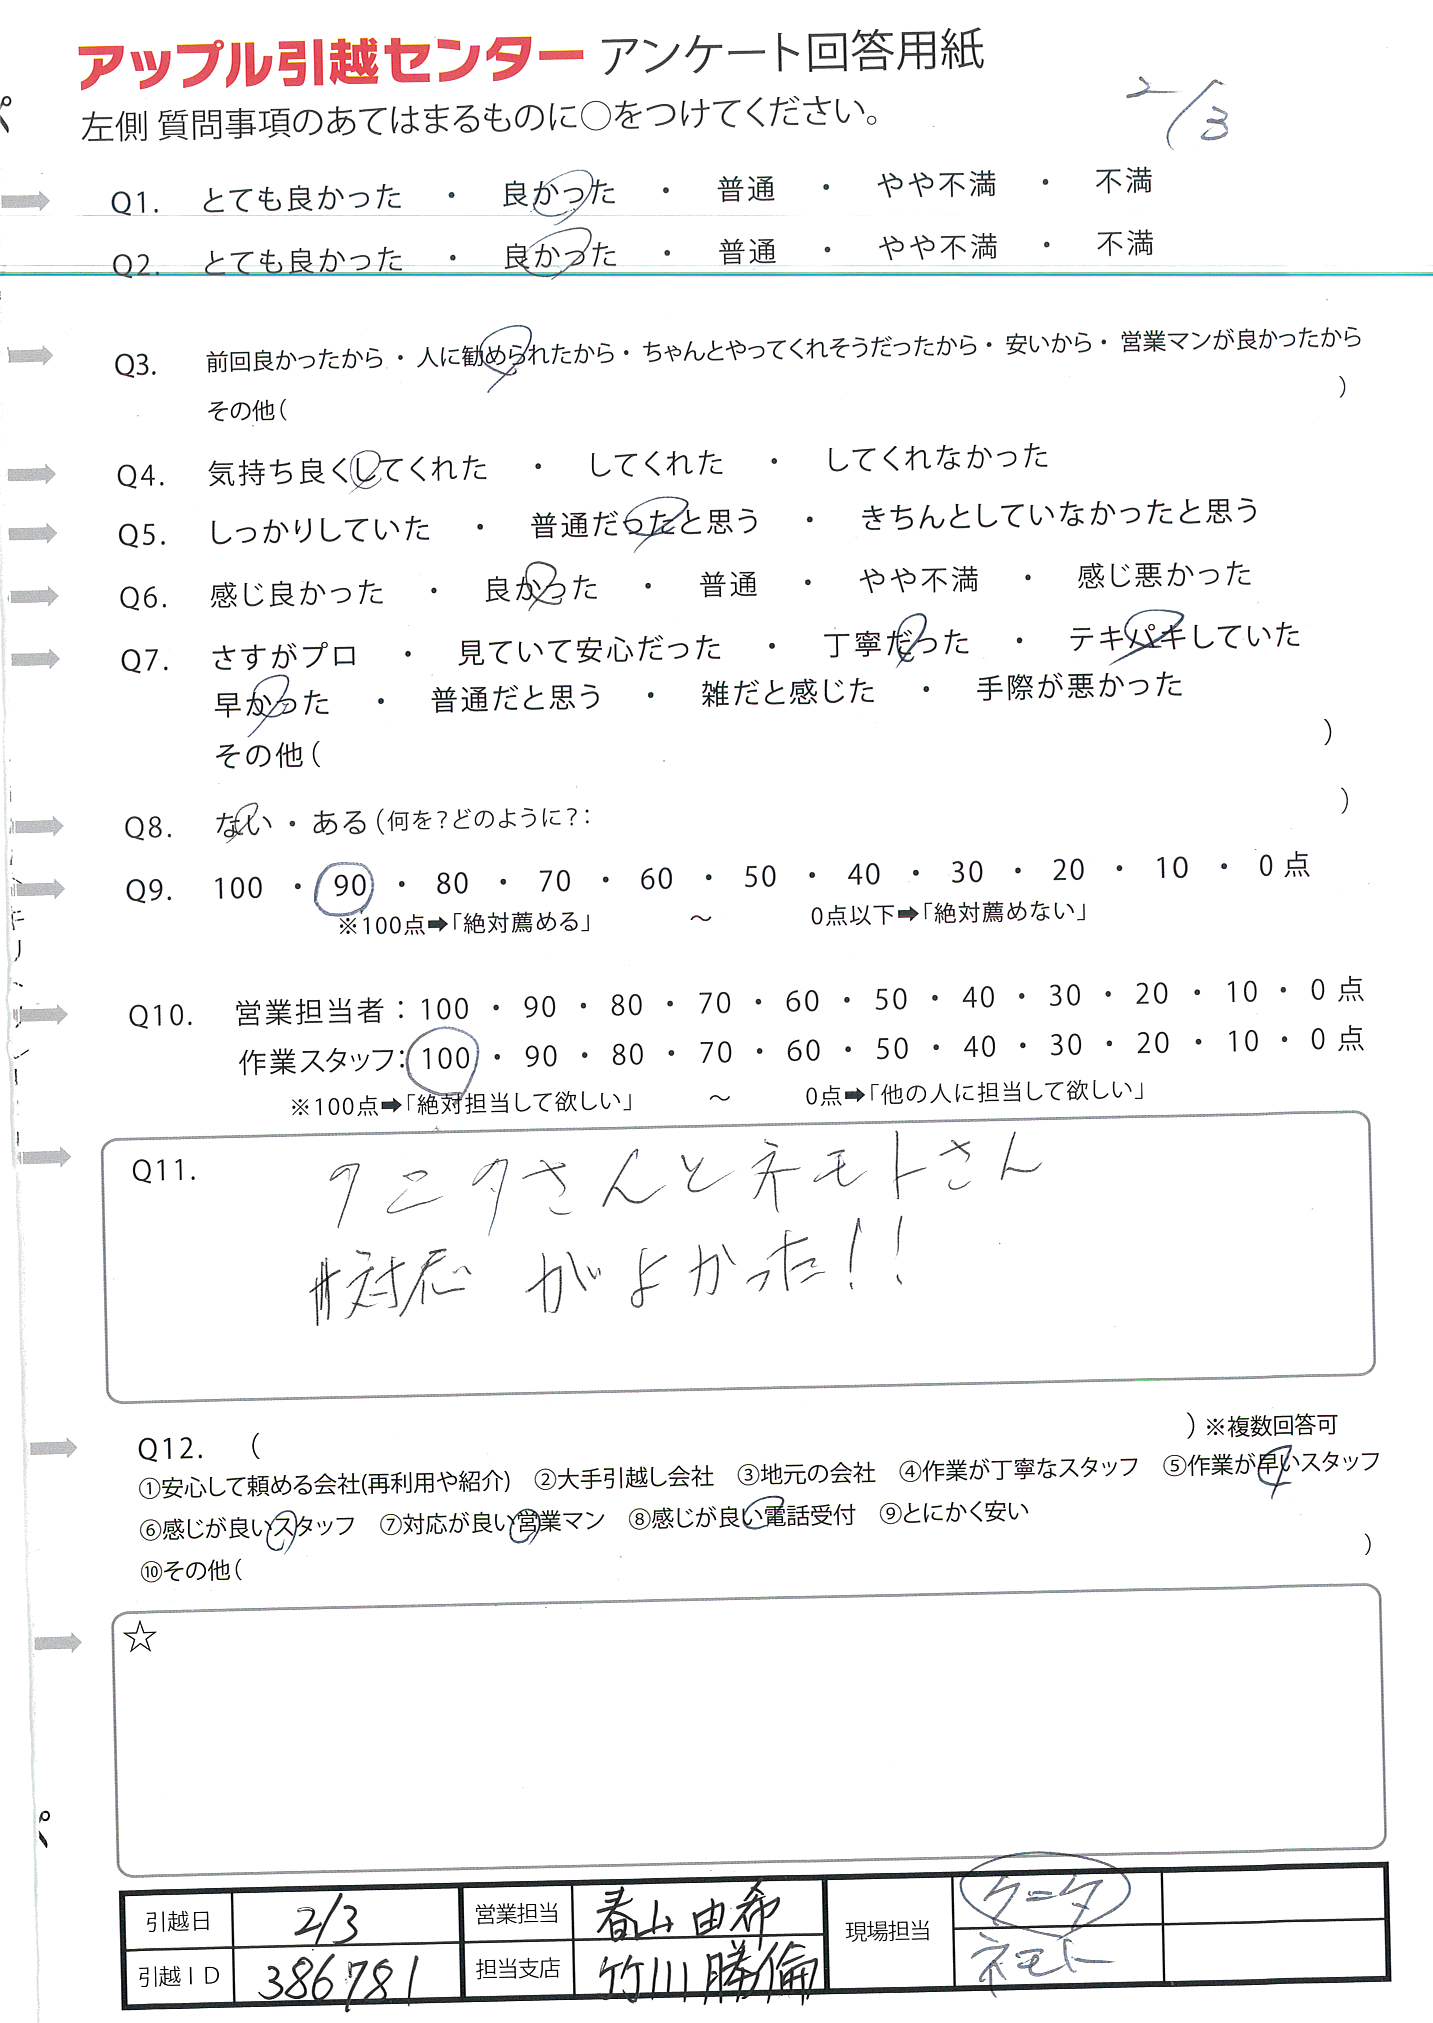 アップル引越センター アンケート回答用紙
2/3
左側 質問事項のあてはまるものに○をつけてください。
Q1. とても良かった ・ 良かった ・ 普通 ・ やや不満 ・ 不満
Q2. とても良かった ・ 良かった ・ 普通 ・ やや不満 ・ 不満
Q3. 前回良かったから・人に勧められたから・ちゃんとやってくれそうだったから・安いから・営業マンが良かったから
その他( )
Q4. 気持ち良くしてくれた ・ してくれた ・ してくれなかった
Q5. しっかりしていた ・ 普通だったと思う ・ きちんとしていなかったと思う
Q6. 感じ良かった ・ 良かった ・ 普通 ・ やや不満 ・ 感じ悪かった
Q7. さすがプロ ・ 見ていて安心だった ・ 丁寧だった ・ テキパキしていた
早かった ・ 普通だと思う ・ 雑だと感じた ・ 手際が悪かった
その他( )
Q8. ない・ある(何を?どのように?: )
Q9. 100 ・ 90 ・ 80 ・ 70 ・ 60 ・ 50 ・ 40 ・ 30 ・ 20 ・ 10 ・ 0点
※100点➡「絶対薦める」 〜 0点以下➡「絶対薦めない」
Q10. 営業担当者:100 ・ 90 ・ 80 ・ 70 ・ 60 ・ 50 ・ 40 ・ 30 ・ 20 ・ 10 ・ 0点
作業スタッフ:100 ・ 90 ・ 80 ・ 70 ・ 60 ・ 50 ・ 40 ・ 30 ・ 20 ・ 10 ・ 0点
※100点➡「絶対担当して欲しい」 〜 0点➡「他の人に担当して欲しい」
Q11. クニタさんとネモトさん
対応がよかった!!
Q12. ( )※複数回答可
①安心して頼める会社(再利用や紹介) ②大手引越し会社 ③地元の会社 ④作業が丁寧なスタッフ ⑤作業が早いスタッフ
⑥感じが良いスタッフ ⑦対応が良い営業マン ⑧感じが良い電話受付 ⑨とにかく安い
⑩その他( )
☆
引越日 2/3 営業担当 春山由希 現場担当 クニタ
引越ID 386781 担当支店 竹川勝倫 ネモト